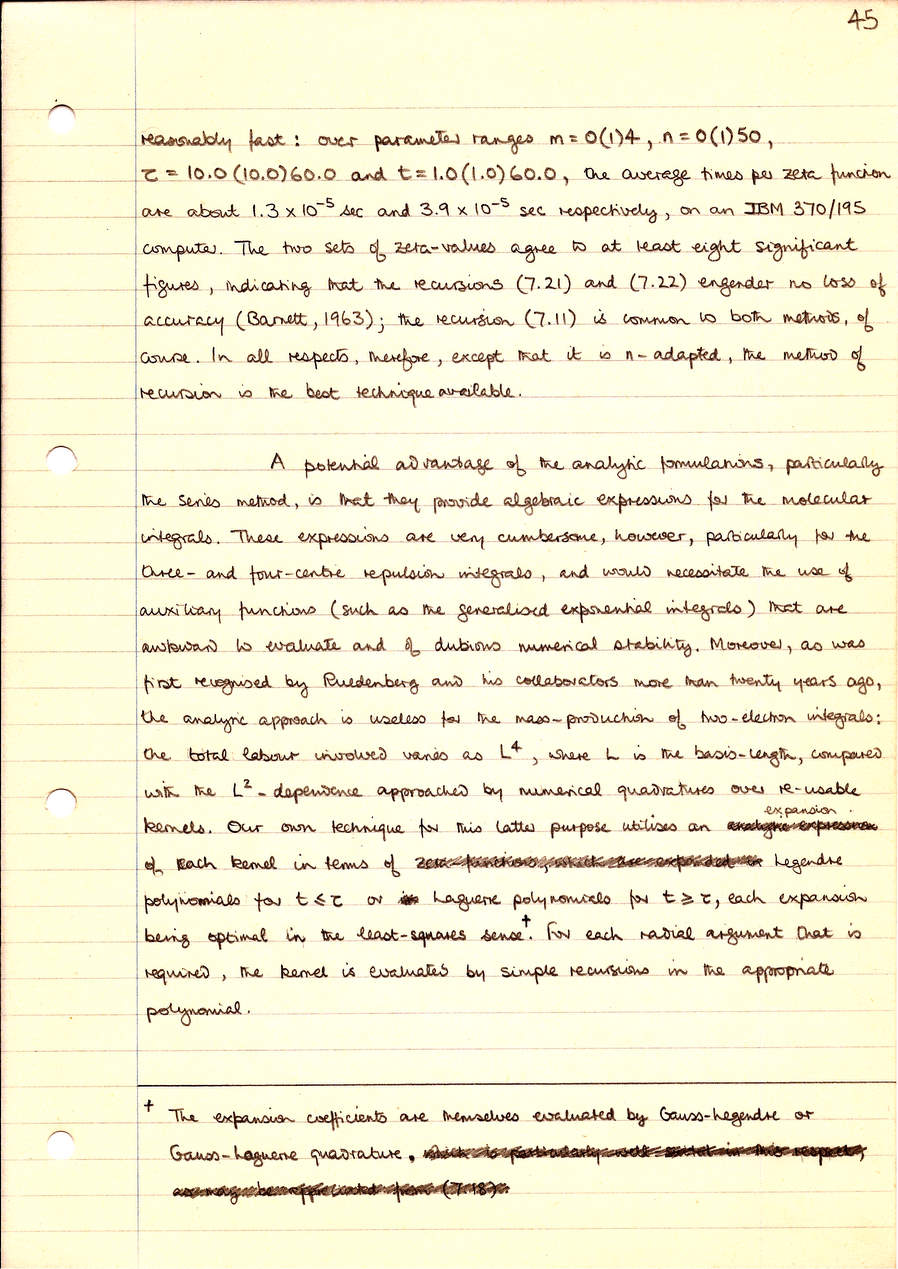 45
reasonably fast : over parameter ranges m = 0(1)4 , n = 0(1)50 ,
τ = 10.0(10.0)60.0 and t = 1.0(1.0)60.0 , the average times per zeta function
are about 1.3 x 10⁻⁵ sec and 3.9 x 10⁻⁵ sec respectively, on an IBM 370/195
computer. The two sets of zeta-values agree to at least eight significant
figures, indicating that the recursions (7.21) and (7.22) engender no loss of
accuracy (Barnett, 1963); the recursion (7.11) is common to both methods, of
course. In all respects, therefore, except that it is n-adapted, the method of
recursion is the best technique available.
A potential advantage of the analytic formulations, particularly
the series method, is that they provide algebraic expressions for the molecular
integrals. These expressions are very cumbersome, however, particularly for the
three- and four-centre repulsion integrals, and would necessitate the use of
auxiliary functions (such as the generalised exponential integrals) that are
awkward to evaluate and of dubious numerical stability. Moreover, as was
first recognised by Ruedenberg and his collaborators more than twenty years ago,
the analytic approach is useless for the mass-production of two-electron integrals:
the total labour involved varies as L⁴, where L is the basis-length, compared
with the L²-dependence approached by numerical quadratures over re-usable
expansion
kernels. Our own technique for this latter purpose utilises an analytic expression
of each kernel in terms of zeta functions, which are expanded in Legendre
polynomials for t ≤ τ or in Laguerre polynomials for t ≥ τ, each expansion
being optimal in the least-squares sense†. For each radial argument that is
required, the kernel is evaluated by simple recursions in the appropriate
polynomial.
† The expansion coefficients are themselves evaluated by Gauss-Legendre or
Gauss-Laguerre quadrature. which is particularly well suited in this respect,
as may be appreciated from (7.18).